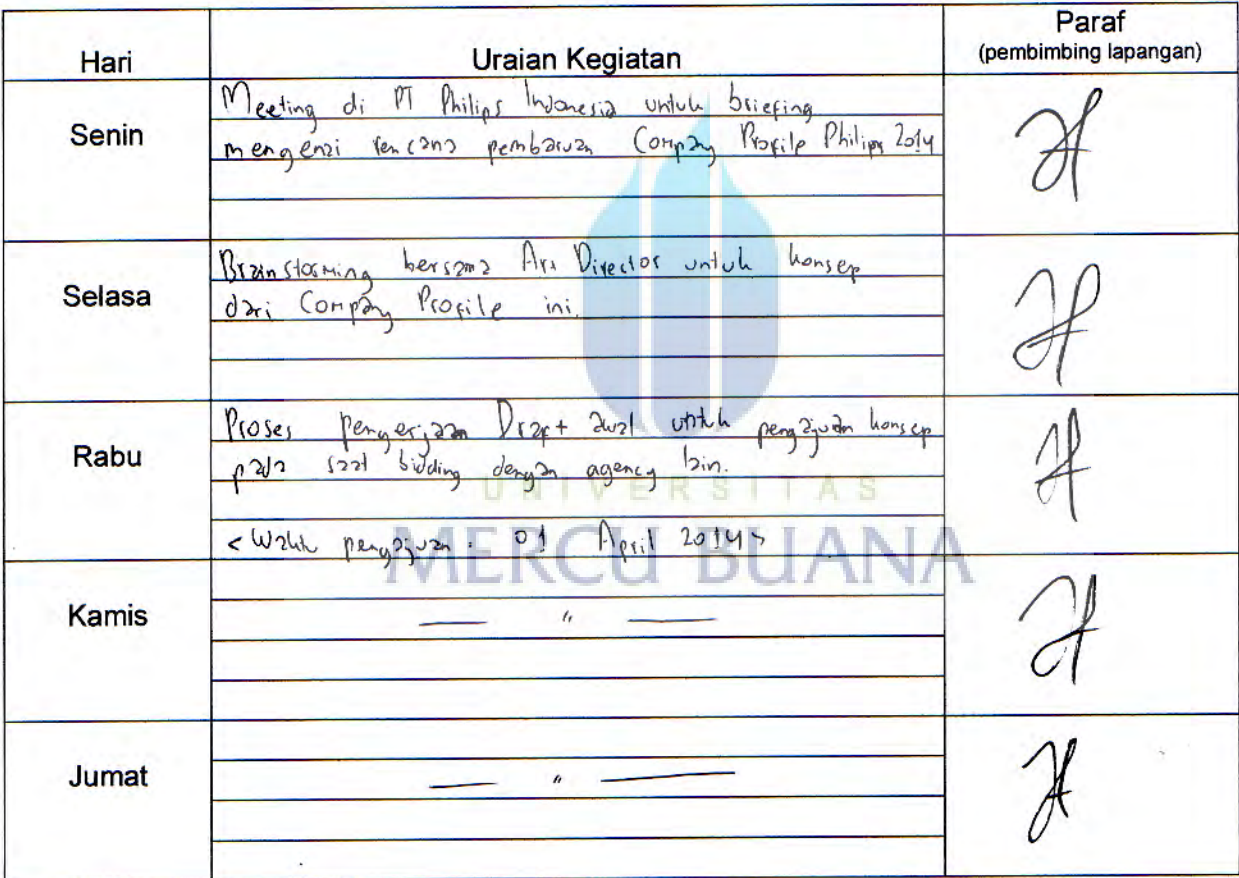 Hari Uraian Kegiatan Paraf
(pembimbing lapangan)
Senin
Meeting di PT Philips Indonesia untuk briefing
mengenai rencana pembaruan Company Profile Philips 2014
Selasa
Brainstorming bersama Art Director untuk konsep
dari Company Profile ini.
Rabu
Proses pengerjaan Draft awal untuk pengajuan konsep
pada saat bidding dengan agency lain.
<Waktu pengajuan : 01 April 2014>
UNIVERSITAS
MERCU BUANA
Kamis
— " —
Jumat
— " —